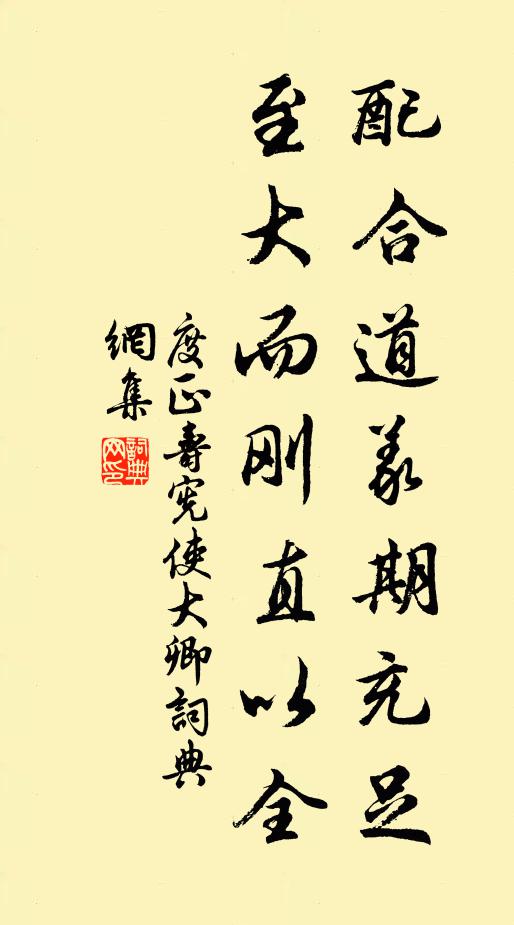 配合道義期充足
至大而刚直以全
度正壽宪使大卿詞典
網集
詞典網印